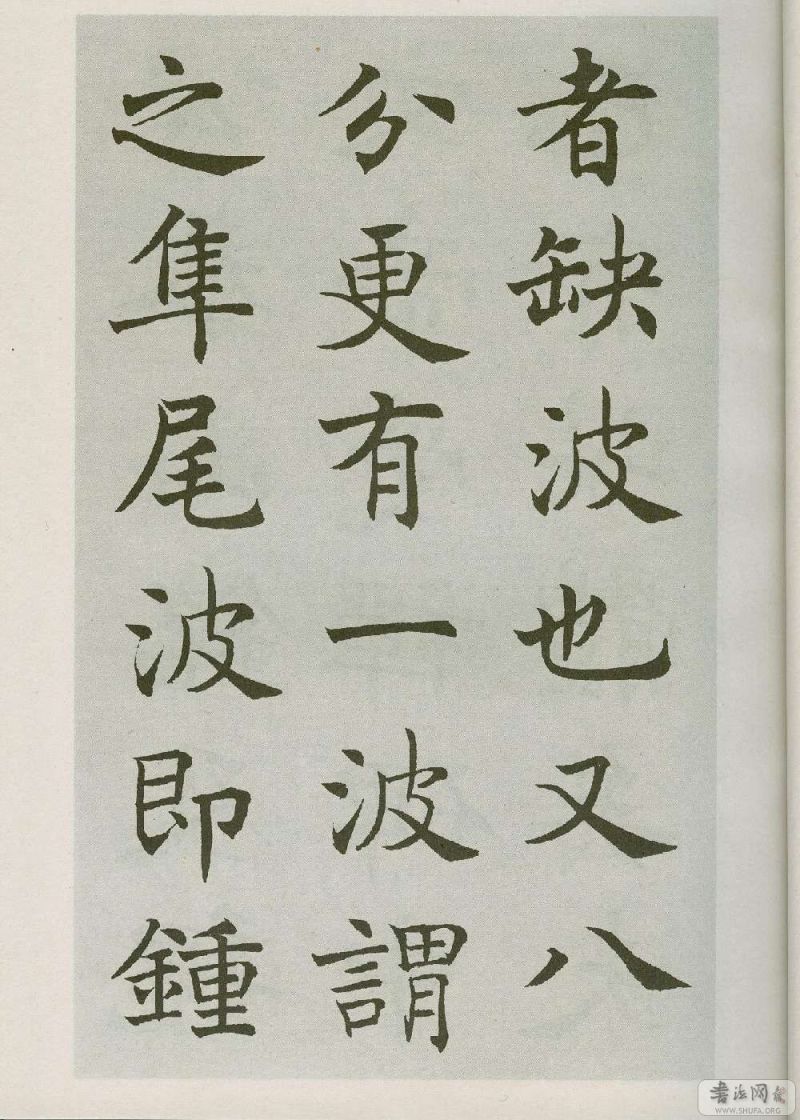 者缺波也又八
分更有一波謂
之隼尾波即鍾
書法网
WWW.SHUFA.ORG